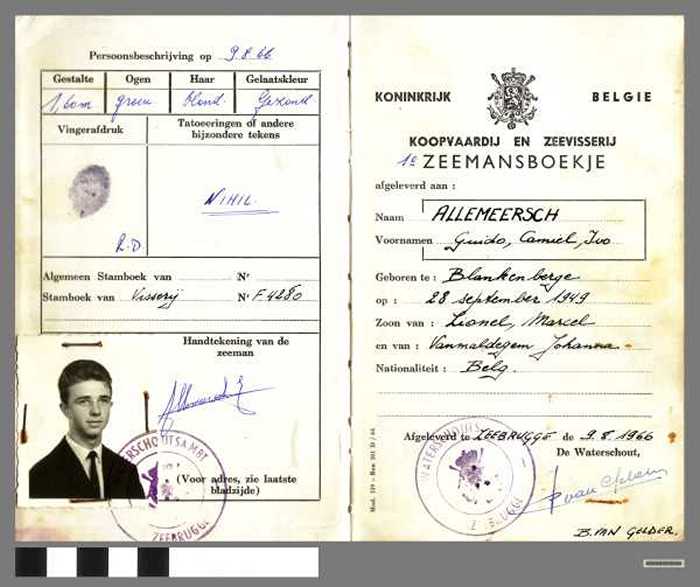 Persoonsbeschrijving op 9.8.66
Gestalte Ogen Haar Gelaatskleur
1,60m groen blond Gezond
Vingerafdruk
Tatoeëringen of andere
bijzondere tekens
NIHIL.
R.D.
Algemeen Stamboek van N^r
Stamboek van Visserij N^r F.4280
Handtekening van de
zeeman
WATERSCHOUTSAMBT
ZEEBRUGGE
(Voor adres, zie laatste
bladzijde)
KONINKRIJK BELGIE
KOOPVAARDIJ EN ZEEVISSERIJ
1e ZEEMANSBOEKJE
afgeleverd aan :
Naam ALLEMEERSCH
Voornamen Guido, Camiel, Ivo
Geboren te : Blankenberge
op : 28 september 1949
Zoon van : Lionel, Marcel
en van : Vanmaldegem Johanna
Nationaliteit : Belg.
Afgeleverd te ZEEBRUGGE de 9.8.1966
De Waterschout,
B. VAN GELDER.